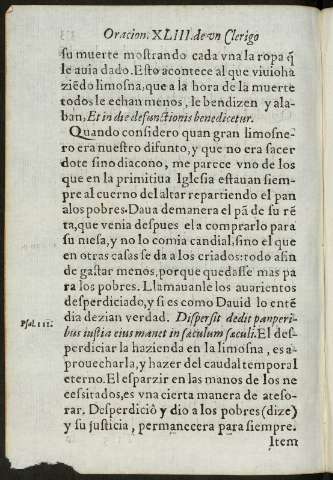 Oracion. XLIII. de vn Clerigo
su muerte mostrando cada vna la ropa q̃
le auia dado. Esto acontece al que viuio ha
ziẽdo limosna, que a la hora de la muerte
todos le echan menos, le bendizen y ala-
ban, Et in die defunctionis benedicetur.
Quando considero quan gran limosne-
ro era nuestro difunto, y que no era sacer
dote sino diacono, me parece vno de los
que en la primitiua Iglesia estauan siem-
pre al cuerno del altar repartiendo el pan
a los pobres. Daua de manera el pã de su rẽ
ta, que venia despues el a comprarlo para
su mesa, y no lo comia candial, sino el que
en otras casas se da a los criados: todo a fin
de gastar menos, porque quedasse mas pa
ra los pobres. Llamauanle los auarientos
desperdiciado, y si es como Dauid lo entẽ
dia dezian verdad. Dispersit dedit pauperi-
Psal. 111.
bus iustitia eius manet in sæculum sæculi. El des-
perdiciar la hazienda en la limosna, es a-
prouecharla, y hazer del caudal temporal
eterno. El esparzir en las manos de los ne
cessitados, es vna cierta manera de ateso-
rar. Desperdiciò y dio a los pobres (dize)
y su justicia, permanecera para siempre.
Item